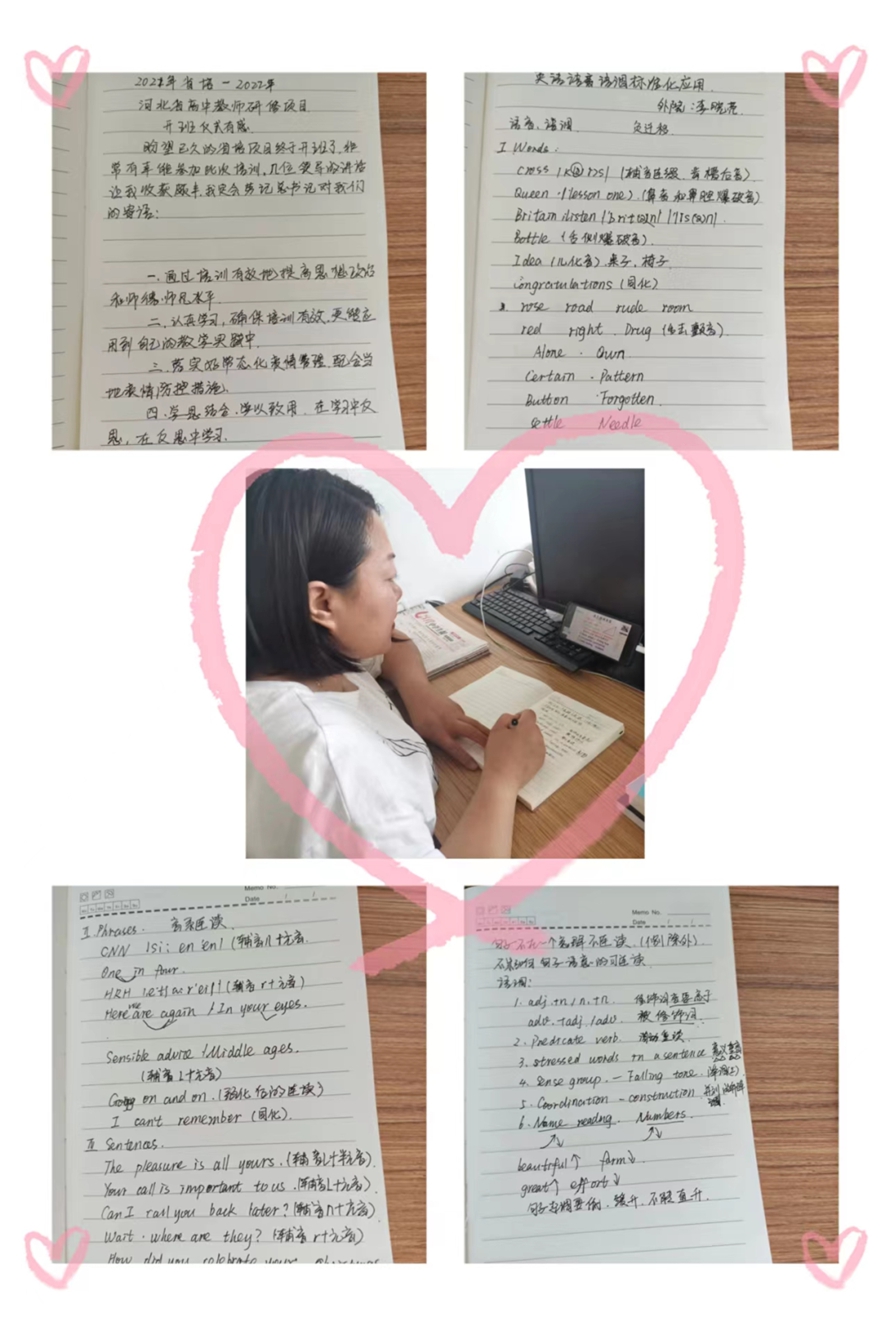 2021年省培-2022年
河北省高中教师研修项目
开班仪式有感
盼望已久的国培项目终于开班了,很
常有幸能参加此次培训,几位领导的讲话
让我收获颇丰,我定会牢记总书记对我们
的寄语:
一.通过培训有效地提高思想政治
和师德师风水平
二.认真学习,确保培训有效,更够应
用到自己的教学实践中.
三.落实好常态化疫情管理,配合当
地疫情防控措施.
四.学思结合.学以致用.在学习中反
思,在反思中学习.
英语语音语调标准化应用.
外院:李晓亮
语音、语调 负迁移
I Words.
Cross
Queen (lesson one)
Britain listen
Bottle (舌侧爆破音).
Idea (儿化音).桌子.椅子.
Congratulations (同化)
rose road rude room
red right Drug
Alone . Own
Certain . Pattern
Button . Forgotten.
Settle Needle
Memo No.
Date
II Phrases. 意系连读.
CNN |si: en en| (辅音n+元音.
One in four.
HRH (辅音r+元音)
Here we are again / In your eyes.
Sensible advice / Middle ages.
(辅音l+元音)
Going on and on. (弱化后的连读)
I can't remember (同化).
III Sentences.
The pleasure is all yours. (辅音l+半元音)
Your call is important to us. (辅音l+元音)
Can I call you back later? (辅音n+元音)
Wait . where are they? (辅音r+元音)
How did you celebrate your
Memo No.
Date
句子不在一个意群不连读.(个例除外).
不影响句子语意的可连读
语调:
1. adj.+n / n.+n.
adv.+adj / adv. 被修饰词.
2. Predicate verb. 滑动重读.
3. stressed words in a sentence
4. Sense group. — Falling tone.
5. Coordination - construction
6. Name reading. Numbers.
beautiful↑ farm↓
great↑ effort↓
句子右侧要倒.缓升.不能直升.